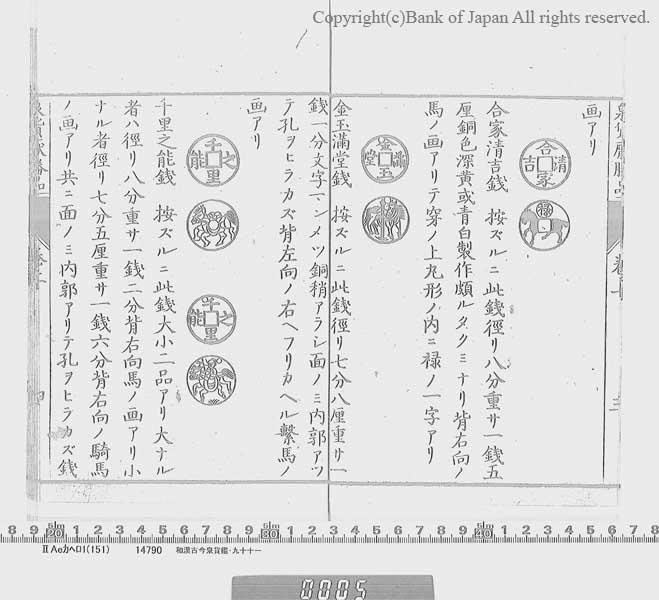 Copyright(c)Bank of Japan All rights reserved.
画アリ
合家清吉
禄
合家清吉銭 按ズルニ此銭徑リ八分重サ一銭五
厘銅色深黄或青白製作頗ルタクミナリ背右向ノ
馬ノ画アリテ穿ノ上丸形ノ内ニ禄ノ一字アリ
金玉滿堂
金玉滿堂銭 按ズルニ此銭徑リ七分八厘重サ一
銭一分文字マンメツ銅稍アラシ面ノミ内郭アツ
テ孔ヲヒラカズ背左向ノ右ヘフリカヘル繋馬ノ
画アリ
千里之能
千里之能
千里之能銭 按ズルニ此銭大小二品アリ大ナル
者ハ徑リ八分重サ一銭二分背右向馬ノ画アリ小
ナル者徑リ七分五厘重サ一銭六分背右向ノ騎馬
ノ画アリ共ニ面ノミ内郭アリテ孔ヲヒラカズ銭
8 9 20 1 2 3 4 5 6 7 8 9 30 1 2 3 4 5 6 7 8 9 40 1 2 3 4 5 6 7 8
II Aeカヘロ1(151) 14790 和漢古今泉貨鑑・九十十一
0005